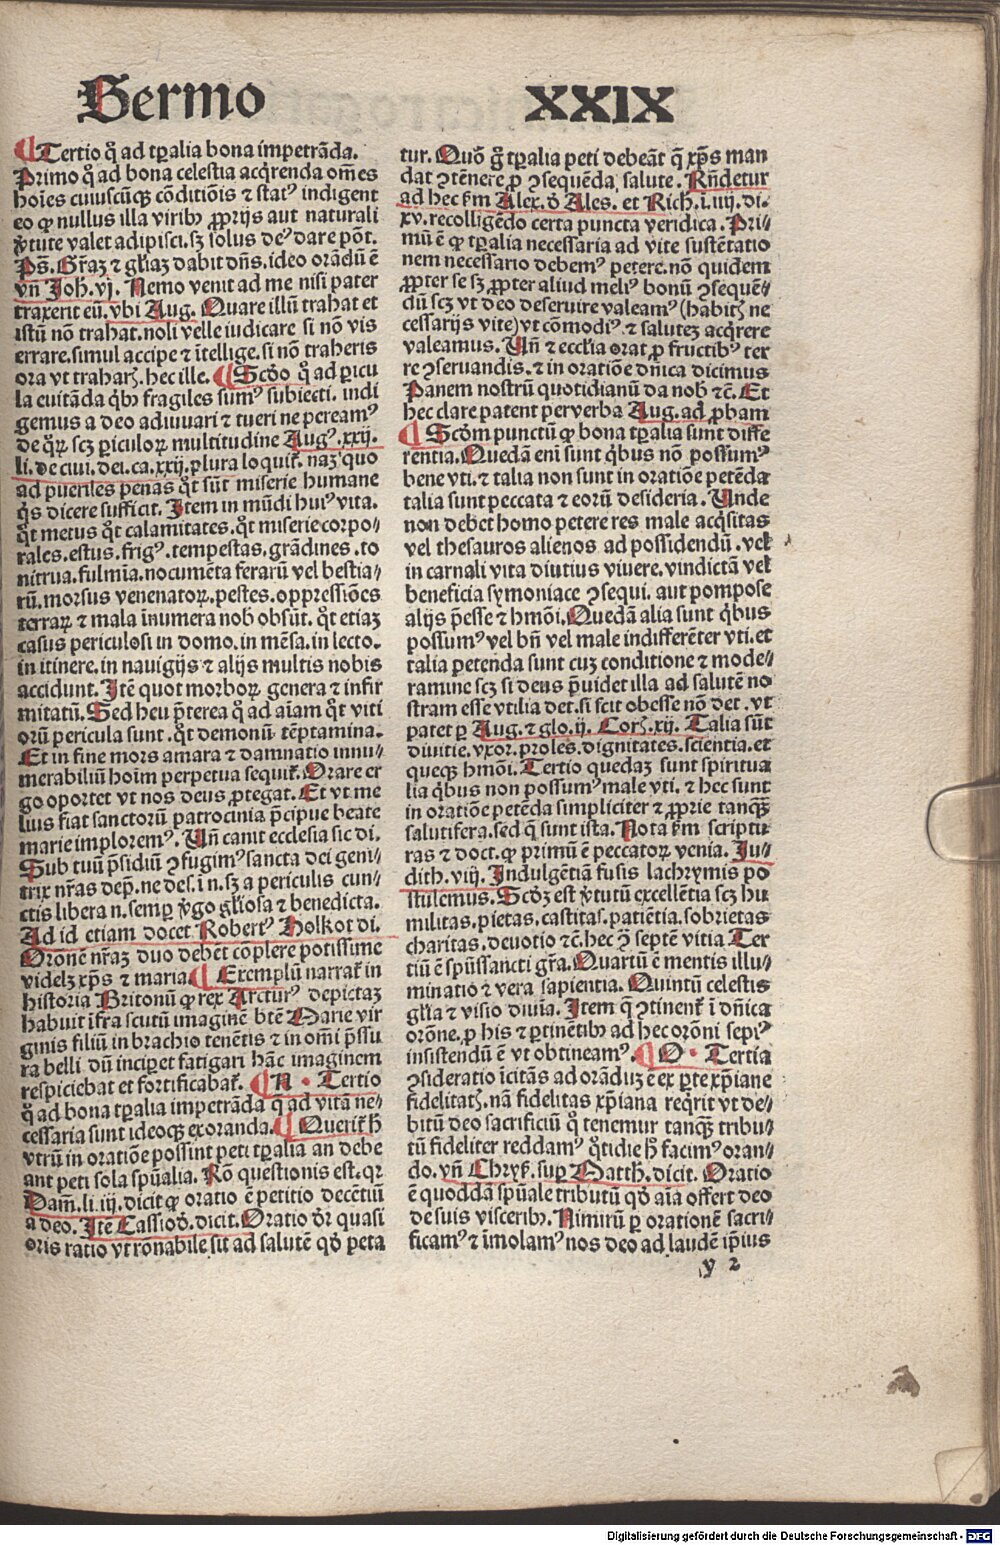 Sermo XXIX
¶ Tertio q̄ ad tꝑalia bona impetrāda.
Primo q̄ ad bona celestia acq̄renda om̄es
hoīes cuiuscūqꝫ cōditiōis ⁊ statꝰ indigent
eo ꝙ nullus illa viribꝫ ꝓprijs aut naturali
v̄tute valet adipisci.sꝫ solus deꝰ dare pōt.
Ps̄. Gr̄aꝫ ⁊ gl̄iaꝫ dabit dn̄s.ideo orādū ē
vn̄ Joh̄.vj. Nemo venit ad me nisi pater
traxerit eū.vbi Aug. Quare illū trahat et
istū nō trahat.noli velle iudicare si nō vis
errare.simul accipe ⁊ ītellige.si nō traheris
ora vt traharꝭ.hec ille. ¶ Scd̄o q̄ ad ꝑicu
la euitāda q̄bꝫ fragiles sumꝰ subiecti. indi
gemus a deo adiuuari ⁊ tueri ne pereamꝰ
de q̄rꝝ scꝫ ꝑiculoꝝ multitudine Augꝰ.xxij.
li.de ciui.dei.ca.xxij.plura loquit̄. naꝫ quo
ad pueriles penas q̄t sūt miserie humane
q̄s dicere sufficit. Item in mūdi huiꝰ vita.
q̄t metus q̄t calamitates.q̄t miserie corpo⸗
rales.estus.frigꝰ.tempestas.grādines.to
nitrua.fulmīa.nocumēta ferarū vel bestia⸗
rū.morsus venenatoꝝ.pestes.oppressiōes
terraꝝ ⁊ mala īnumera nob obsūt. q̄t etiaꝫ
casus periculosi in domo.in mēsa.in lecto.
in itinere.in nauigijs ⁊ alijs multis nobis
accidunt. Itē quot morboꝝ genera ⁊ infir
mitatū. Sed heu p̄terea q̄ ad aīam q̄t viti
orū pericula sunt.q̄t demonū tēptamina.
Et in fine mors amara ⁊ damnatio innu⸗
merabiliū hoīm perpetua sequit̄. Orare er
go oportet vt nos deus ꝓtegat. Et vt me
lius fiat sanctorū patrocinia p̄cipue beate
marie imploremꝰ. Un̄ canit ecclesia sic di.
Sub tuū p̄sidiū ↄfugimꝰ sancta dei geni⸗
trix nr̄as dep̄.ne des.ī n.sꝫ a periculis cun⸗
ctis libera n.semꝑ v̄go gl̄iosa ⁊ benedicta.
Ad id etiam docet Robertꝰ Holkot di.
Oronē nr̄aꝫ duo debēt cōplere potissime
videlꝫ xp̄s ⁊ maria. ¶ Exemplū narrat̄ in
historia Britonū ꝙ rex Arcturꝰ depictaꝫ
habuit īfra scutū imaginē btē Marie vir
ginis filiū in brachio tenētis ⁊ in om̄i p̄ssu
ra belli dū inciꝑet fatigari hāc imaginem
respiciebat et fortificabat̄. ¶ N. Tertio
q̄ ad bona tꝑalia impetrāda q̄ ad vitā ne⸗
cessaria sunt ideoqꝫ exoranda. ¶ Querit̄ h̄
vtrū in oratiōe possint peti tꝑalia an debe
ant peti sola spūalia. Rō questionis est.qꝛ
Dam̄.li.iij.dicit ꝙ oratio ē petitio decētiū
a deo. Itē Cassiod̄.dicit. Oratio dr̄ quasi
oris ratio vt rōnabile sit ad salutē qd̄ peta
tur. Quō gͦ tꝑalia peti debeāt q̄ xp̄s man
dat ↄtēnere ꝓ ↄsequēda salute. Rn̄detur
ad hec ẜm Alex.d̄ Ales. et Rich̄.i.iiij.di.
xv.recolligēdo certa puncta veridica. Pri⸗
mū ē ꝙ tꝑalia necessaria ad vite sustētatio
nem necessario debemꝰ petere.nō quidem
ꝓpter se sꝫ ꝓpter aliud meliꝰ bonū ↄsequē⸗
dū scꝫ vt deo deseruire valeamꝰ (habitꝭ ne
cessarijs vite) vt cōmodiꝰ.⁊ saluteꝫ acq̄rere
valeamus. Un̄ ⁊ eccl̄ia orat ꝓ fructibꝰ ter
re ↄseruandis.⁊ in oratiōe dn̄ica dicimus
Panem nostrū quotidianū da nob̄ ⁊c̄. Et
hec clare patent per verba Aug.ad ꝓbam
¶ Scd̄m punctū ꝙ bona tꝑalia sunt diffe
rentia. Quedā eni sunt q̄bus nō possumꝰ
bene vti.⁊ talia non sunt in oratiōe petēda
talia sunt peccata ⁊ eorū desideria. Unde
non debet homo petere res male acq̄sitas
vel thesauros alienos ad possidendū.vel
in carnali vita diutius viuere.vindictā vel
beneficia symoniace ↄsequi.aut pompose
alijs p̄esse ⁊ hmōi. Quedā alia sunt q̄bus
possumꝰ vel bn̄ vel male indifferēter vti.et
talia petenda sunt cuꝫ conditione ⁊ mode⸗
ramine scꝫ si deus p̄uidet illa ad salutē no
stram esse vtilia det.si scit obesse nō det.vt
patet ꝑ Aug.⁊ glo.ij. Corꝭ.xij. Talia sūt
diuitie.vxor.proles.dignitates.scientia.et
queqꝫ hmōi. Tertio quedaꝫ sunt spiritua
lia q̄bus non possumꝰ male vti. ⁊ hec sunt
in oratiōe petēda simpliciter ⁊ ꝓprie tanqꝫ
salutifera.sed q̄ sunt ista. Nota ẜm scriptu
ras ⁊ doct.ꝙ primū ē peccatoꝝ venia. Ju⸗
dith.viij. Indulgētiā fusis lachrymis po
stulemus. Scd̄ꝫ est v̄tutū excellētia scꝫ hu
militas.pietas.castitas.patiētia.sobrietas
charitas.deuotio ⁊c̄.hec ↄ̄ septē vitia Ter
tiū ē spūssancti gr̄a. Quartū ē mentis illu⸗
minatio ⁊ vera sapientia. Quintū celestis
gl̄ia ⁊ visio diuīa. Item q̄ ↄtinent̄ ī dn̄ica
orōne.ꝓ his ⁊ ꝑtinētibꝫ ad hec orōni sepiꝰ
insistendū ē vt obtineamꝰ. ¶ O. Tertia
ↄsideratio īcitās ad orāduꝫ ē ex ꝑte xp̄iane
fidelitatꝭ.nā fidelitas xp̄iana req̄rit vt de⸗
bitū deo sacrificiū q̄ tenemur tanqꝫ tribu⸗
tū fideliter reddamꝰ q̄tidie h̄ facimꝰ oran⸗
do.vn̄ Chryẜ.suꝑ Matth̄.dicit. Oratio
ē quoddā spūale tributū qd̄ aīa offert deo
de suis visceribꝫ. Nimirū ꝑ orationē sacri⸗
ficamꝰ ⁊ īmolamꝰ nos deo ad laudē ip̄ius
y 2
Digitalisierung gefördert durch die Deutsche Forschungsgemeinschaft - DFG